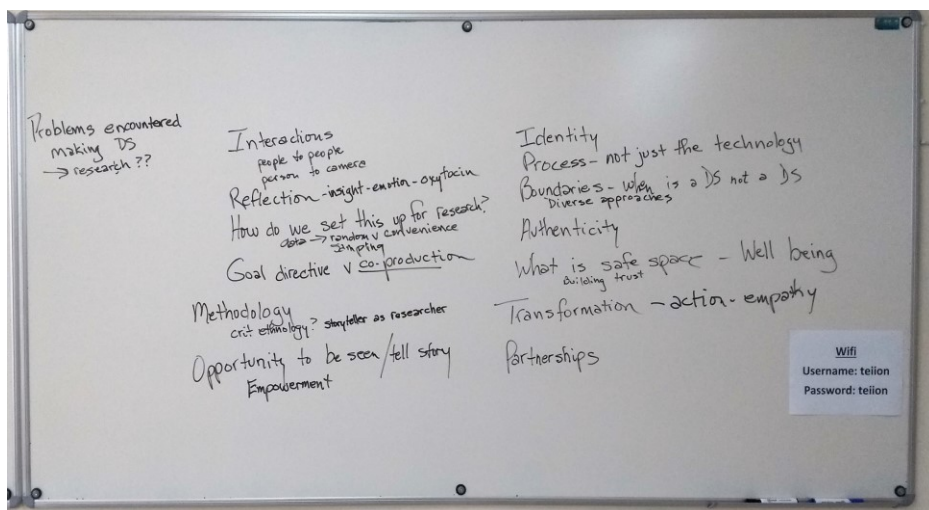 Problems encountered
making DS
→ research ??
Interactions
people to people
person to camera
Reflection - insight - emotion - oxytocin
How do we set this up for research?
data → random v convenience
Goal directive v co-production
Methodology
crit ethnology? storyteller as researcher
Opportunity to be seen/tell story
Empowerment
Identity
Process - not just the technology
Boundaries - when is a DS not a DS
Diverse approaches
Authenticity
What is safe space - Well being
Building trust
Transformation - action - empathy
Partnerships
Wifi
Username: teiion
Password: teiion